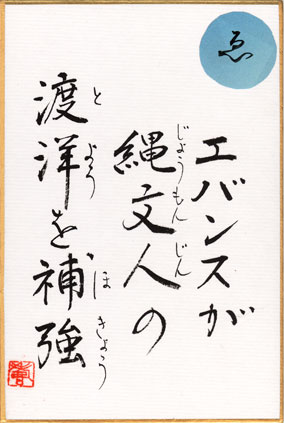 ゑ
エバンスが
縄文人の
じょうもんじん
渡洋を補強
とよう ほきょう